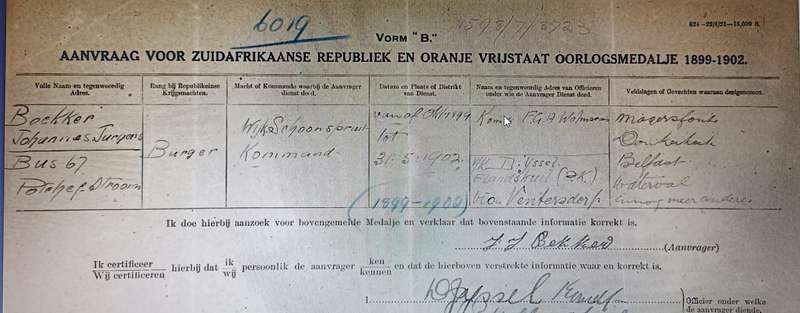 6019
VORM "B."
AANVRAAG VOOR ZUIDAFRIKAANSE REPUBLIEK EN ORANJE VRIJSTAAT OORLOGSMEDALJE 1899-1902.
Volle Naam en tegenwoordig Adres.
Rang bij Republikeinse Krijgsmachten.
Macht of Kommando waarbij de Aanvrager dienst deed.
Datum en Plaats of Distrikt van Dienst.
Naam en tegenwoordig Adres van Officieren onder wie de Aanvrager Dienst deed.
Veldslagen of Gevechten waaraan deelgenomen.
Boekker
Johannes Jurgens
Bus 67
Potchefstroom
Burger
Wijk Schoonspruit
Kommando
vanaf Okt 1899
tot
31-5-1902
(1899-1902)
Kom P.G.A Wolmarans
VK IJssel
Elandskuil (Z.K.)
Ventersdorp
Magersfont
Donkerhoek
Belfast
Waterval
en nog meer andere
Ik doe hierbij aanzoek voor bovengemelde Medalje en verklaar dat bovenstaande informatie korrekt is.
J J Bekker (Aanvrager)
Ik certificeer
Wij certificeren hierbij dat ik
wij persoonlik de aanvrager ken
kennen en dat de hierboven verstrekte informatie waar en korrekt is.
1.
Officier onder welke
de aanvrager diende.